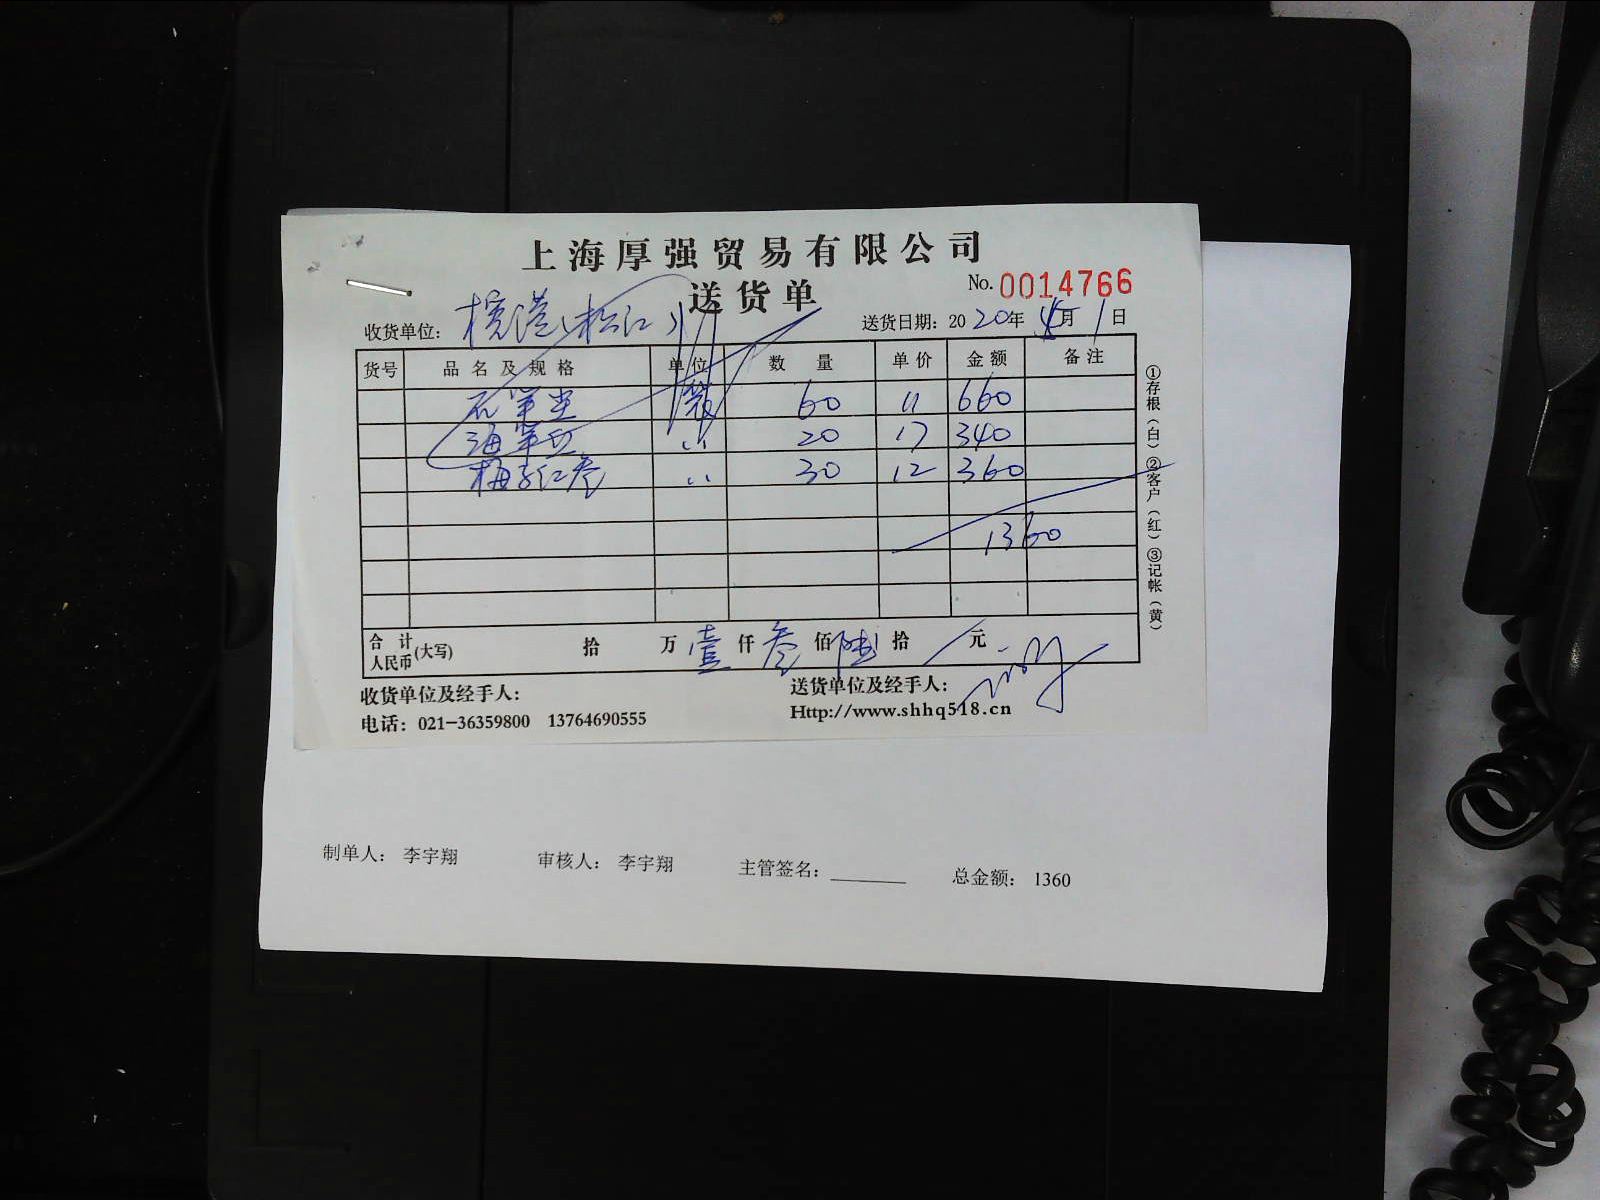 上海厚强贸易有限公司
送货单
No. 0014766
收货单位: (松江)
送货日期: 2020年 月 1日
货号 品名及规格 单位 数量 单价 金额 备注
60 11 660
20 17 340
30 12 360
1360
合计人民币(大写) 拾 万 壹 仟 叁 佰 陆 拾 元
收货单位及经手人: 送货单位及经手人:
电话: 021-36359800 13764690555 Http://www.shhq518.cn
①存根(白)②客户(红)③记帐(黄)
制单人: 李宇翔 审核人: 李宇翔 主管签名: 总金额: 1360